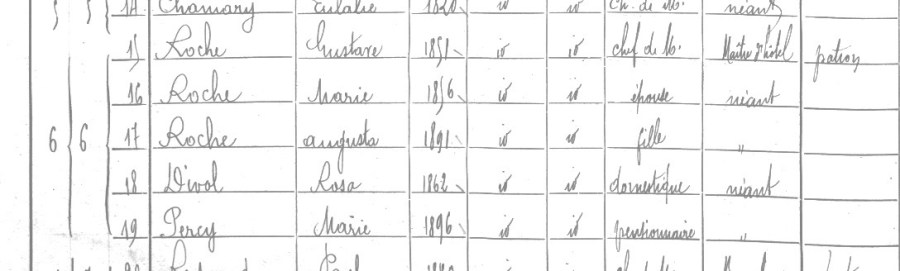 14 Chamary Eulalie 1820 id id ch. de M. néant
15 Roche Gustave 1851 id id chef de M. Maître d'hôtel patron
16 Roche Marie 1856 id id épouse néant
6 6 17 Roche augusta 1891 id id fille "
18 Divol Rosa 1862 id id domestique néant
19 Percy Marie 1896 id id pentionnaire "